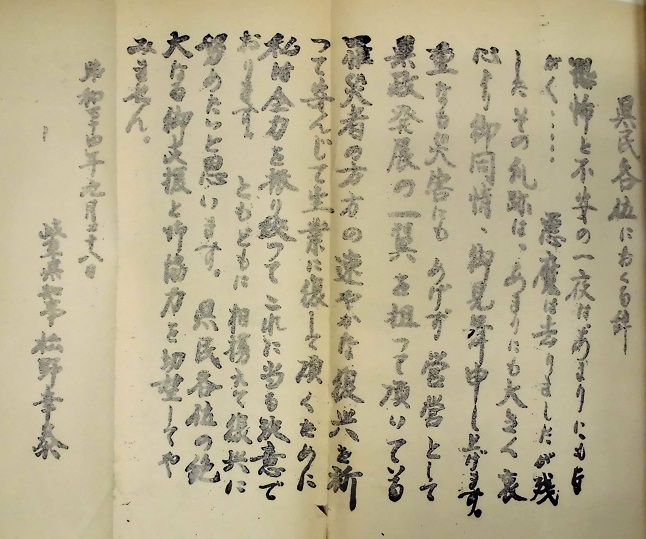 県民各位におくる辞
恐怖と不幸の一夜はあまりにも長
かく……悪魔は去りましたが残
したその爪跡は、あまりにも大きく衷
心より御同情、御見舞申し上げます。
重なる災害にもめげず営営として
県政発展の一翼を担って頂いて
罹災者の方方の速やかな復興を祈
って安んじて生業に復して頂くために
私は全力を振り絞ってこれに当る決意で
おります。ともどもに相携えて復興に
努めたいと思います。県民各位の絶
大なる御支援と御協力を切望してや
みません。
昭和三十四年九月二十八日
岐阜県知事松野幸泰